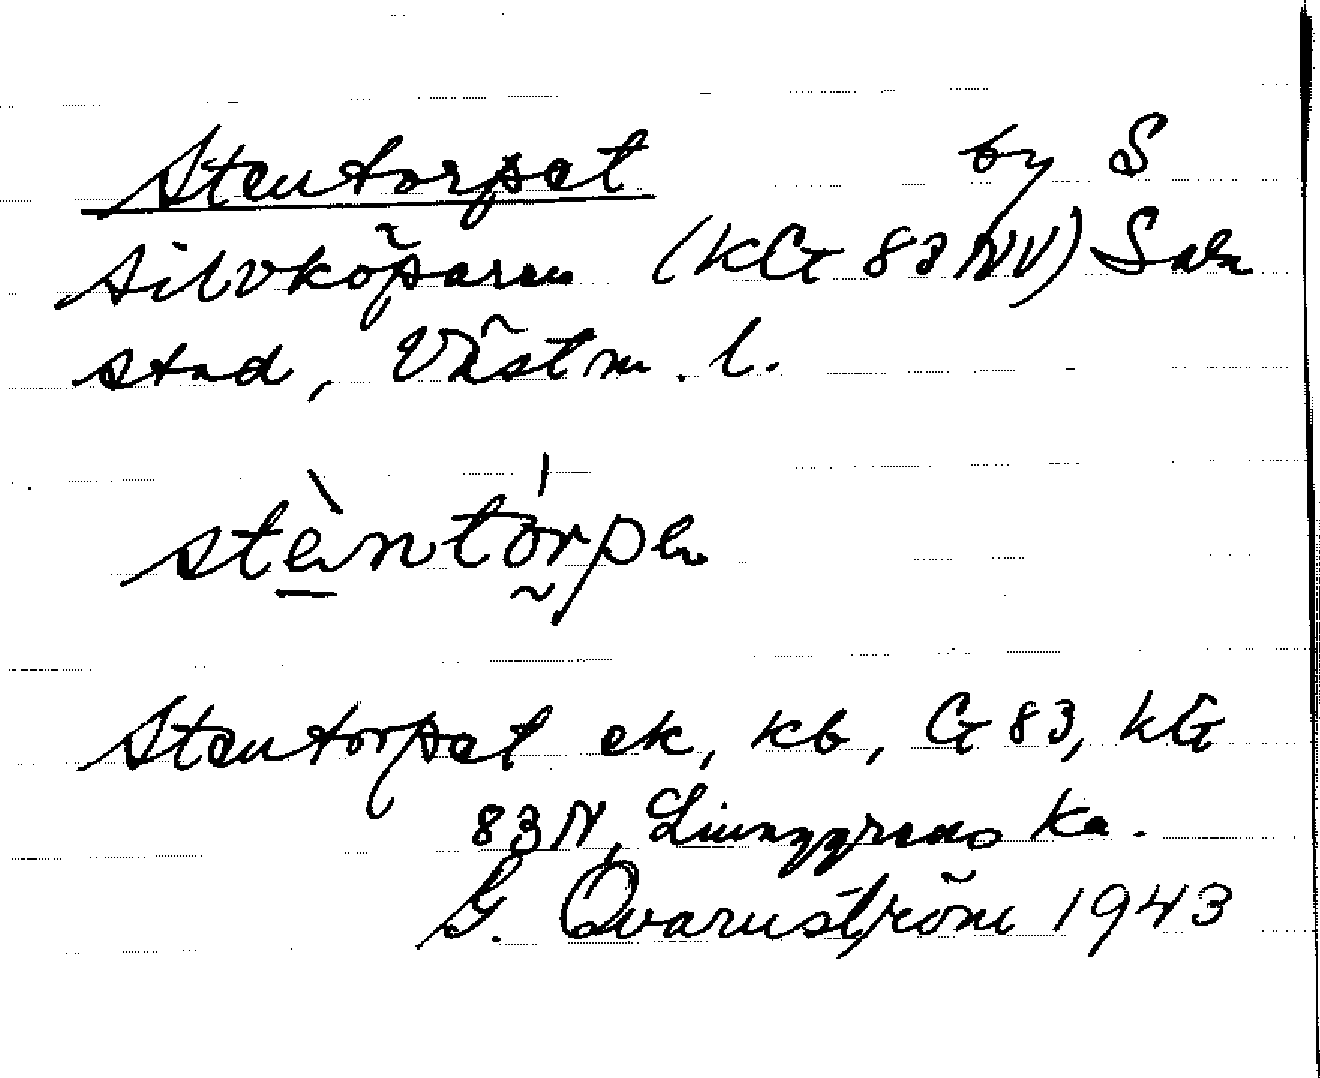 Stentorpet by S
Silvköparen (KG 83 NV) Sala
stad, Västm. l.
stèntórpe
Stentorpet ek, kb, G 83, kG
83 N, Ljunggrens Ka.
G. Qvarnström 1943